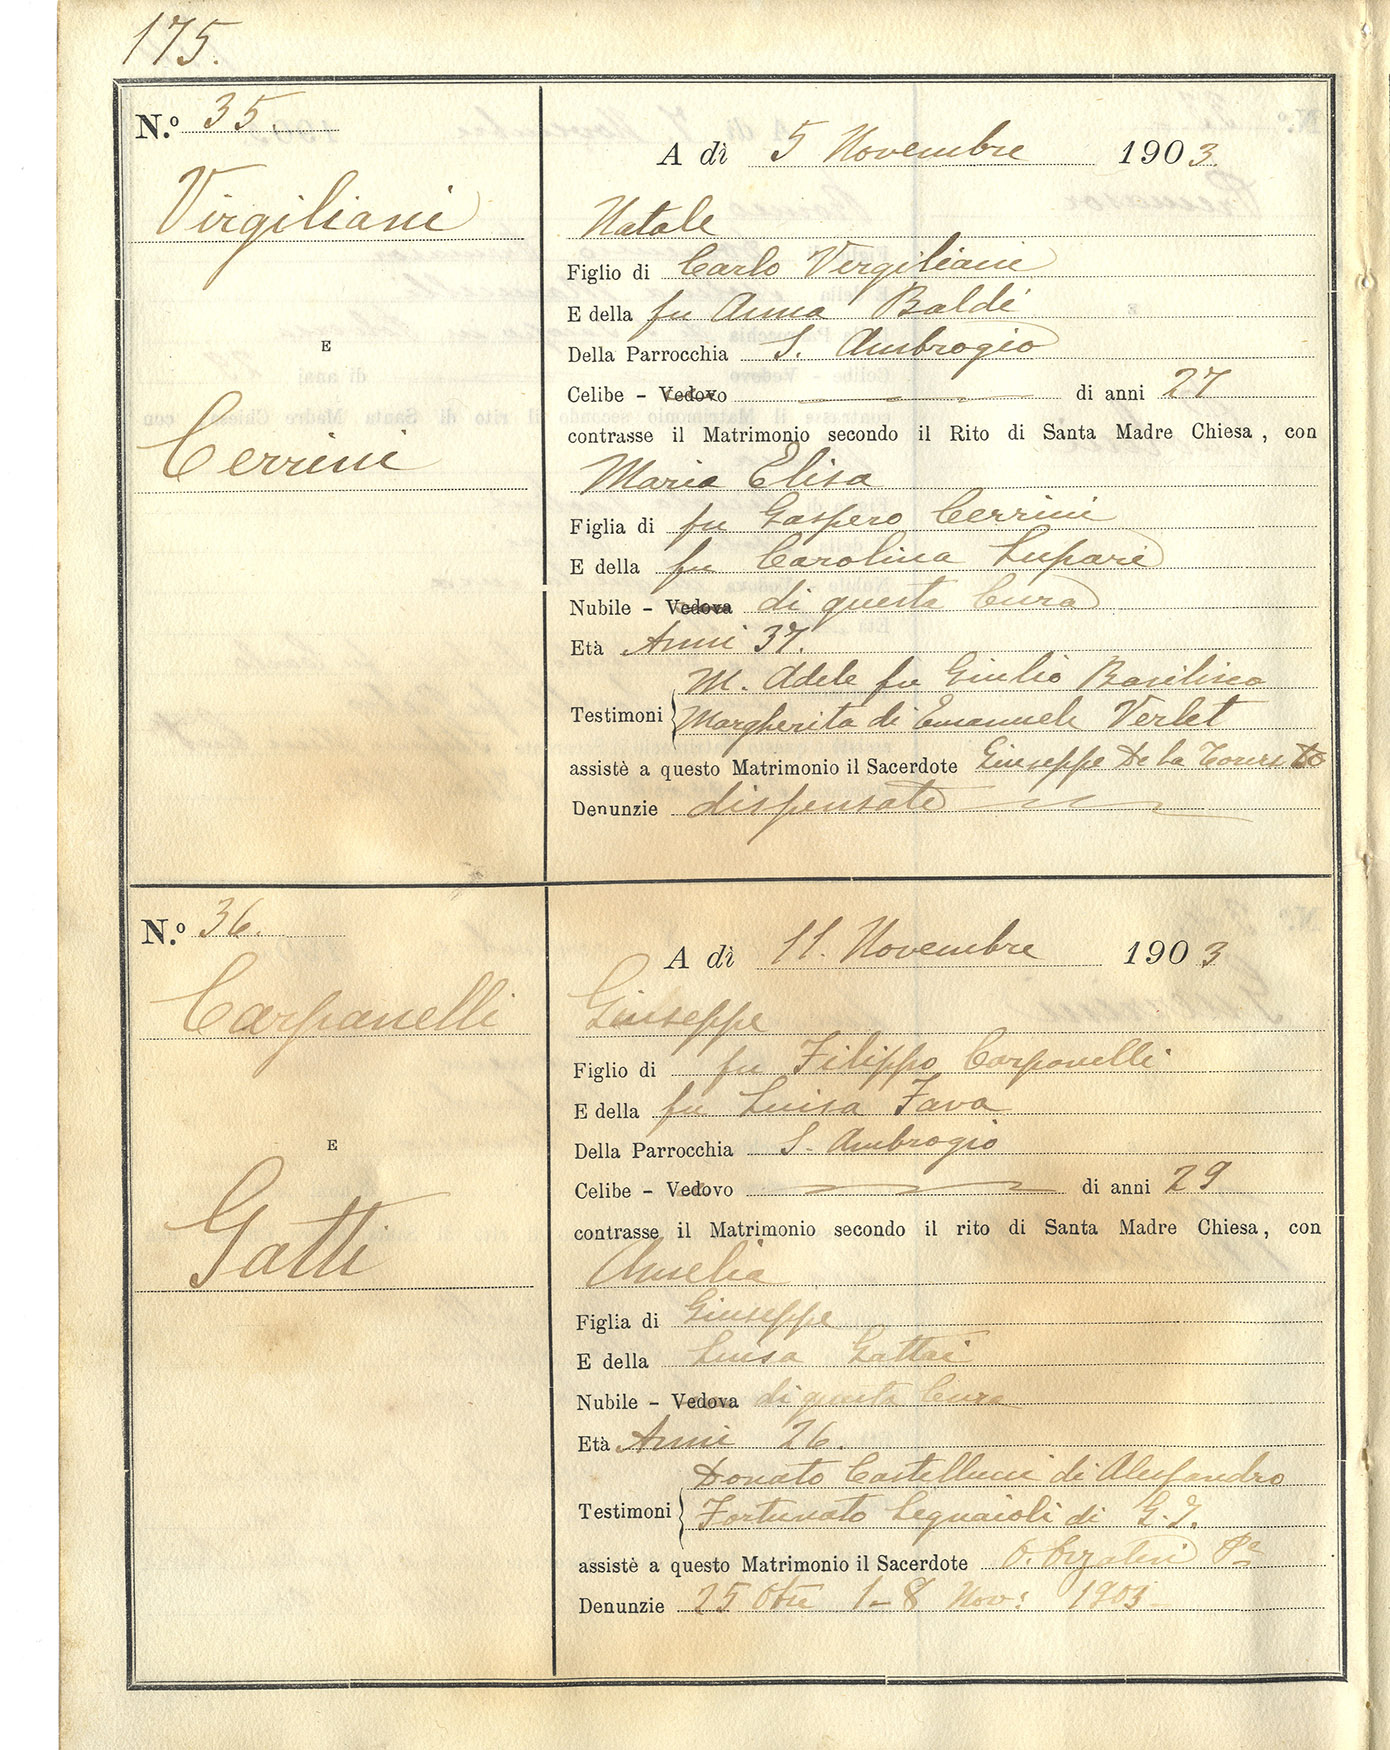 175.
N.º 35.
A dì 5 Novembre 1903.
Virgiliani
E
Cerrini
Natale
Figlio di Carlo Virgiliani
E della fu Anna Baldi
Della Parrocchia S. Ambrogio
Celibe - Vedovo di anni 27
contrasse il Matrimonio secondo il Rito di Santa Madre Chiesa, con
Maria Elisa
Figlia di fu Gaspero Cerrini
E della fu Carolina Lupari
Nubile - Vedova di questa Cura
Età Anni 37.
M. Adele fu Giulio Basilisco
Testimoni Margherita di Emanuele Verlet
assistè a questo Matrimonio il Sacerdote Giuseppe De La
Denunzie dispensate
N.º 36.
A dì 11. Novembre 1903
Carpanelli
E
Gatti
Giuseppe
Figlio di fu Filippo Carpanelli
E della fu Luisa Fava
Della Parrocchia S. Ambrogio
Celibe - Vedovo di anni 29
contrasse il Matrimonio secondo il rito di Santa Madre Chiesa, con
Amelia
Figlia di Giuseppe
E della Luisa Gattai
Nubile - Vedova di questa Cura
Età Anni 26.
Donato Castellucci di Alessandro
Testimoni Fortunato Legnaioli di G. I.
assistè a questo Matrimonio il Sacerdote O.
Denunzie 25 Otre 1-8 Nov: 1903